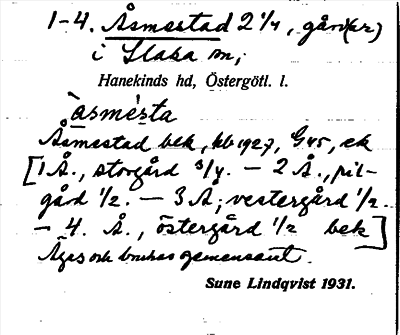 1-4. Åsmestad 2 1/4, gård(ar)
i Slaka sn,
Hanekinds hd, Östergötl. l.
åsmès̀ta
Åsmestad bek, kb 1927, G45, ek
[1 Å., storgård 3/4. — 2 Å., pil-
gård 1/2. — 3 Å., vestergård 1/2.
— 4. Å., östergård 1/2 bek]
Äges och brukas gemensamt.
Sune Lindqvist 1931.